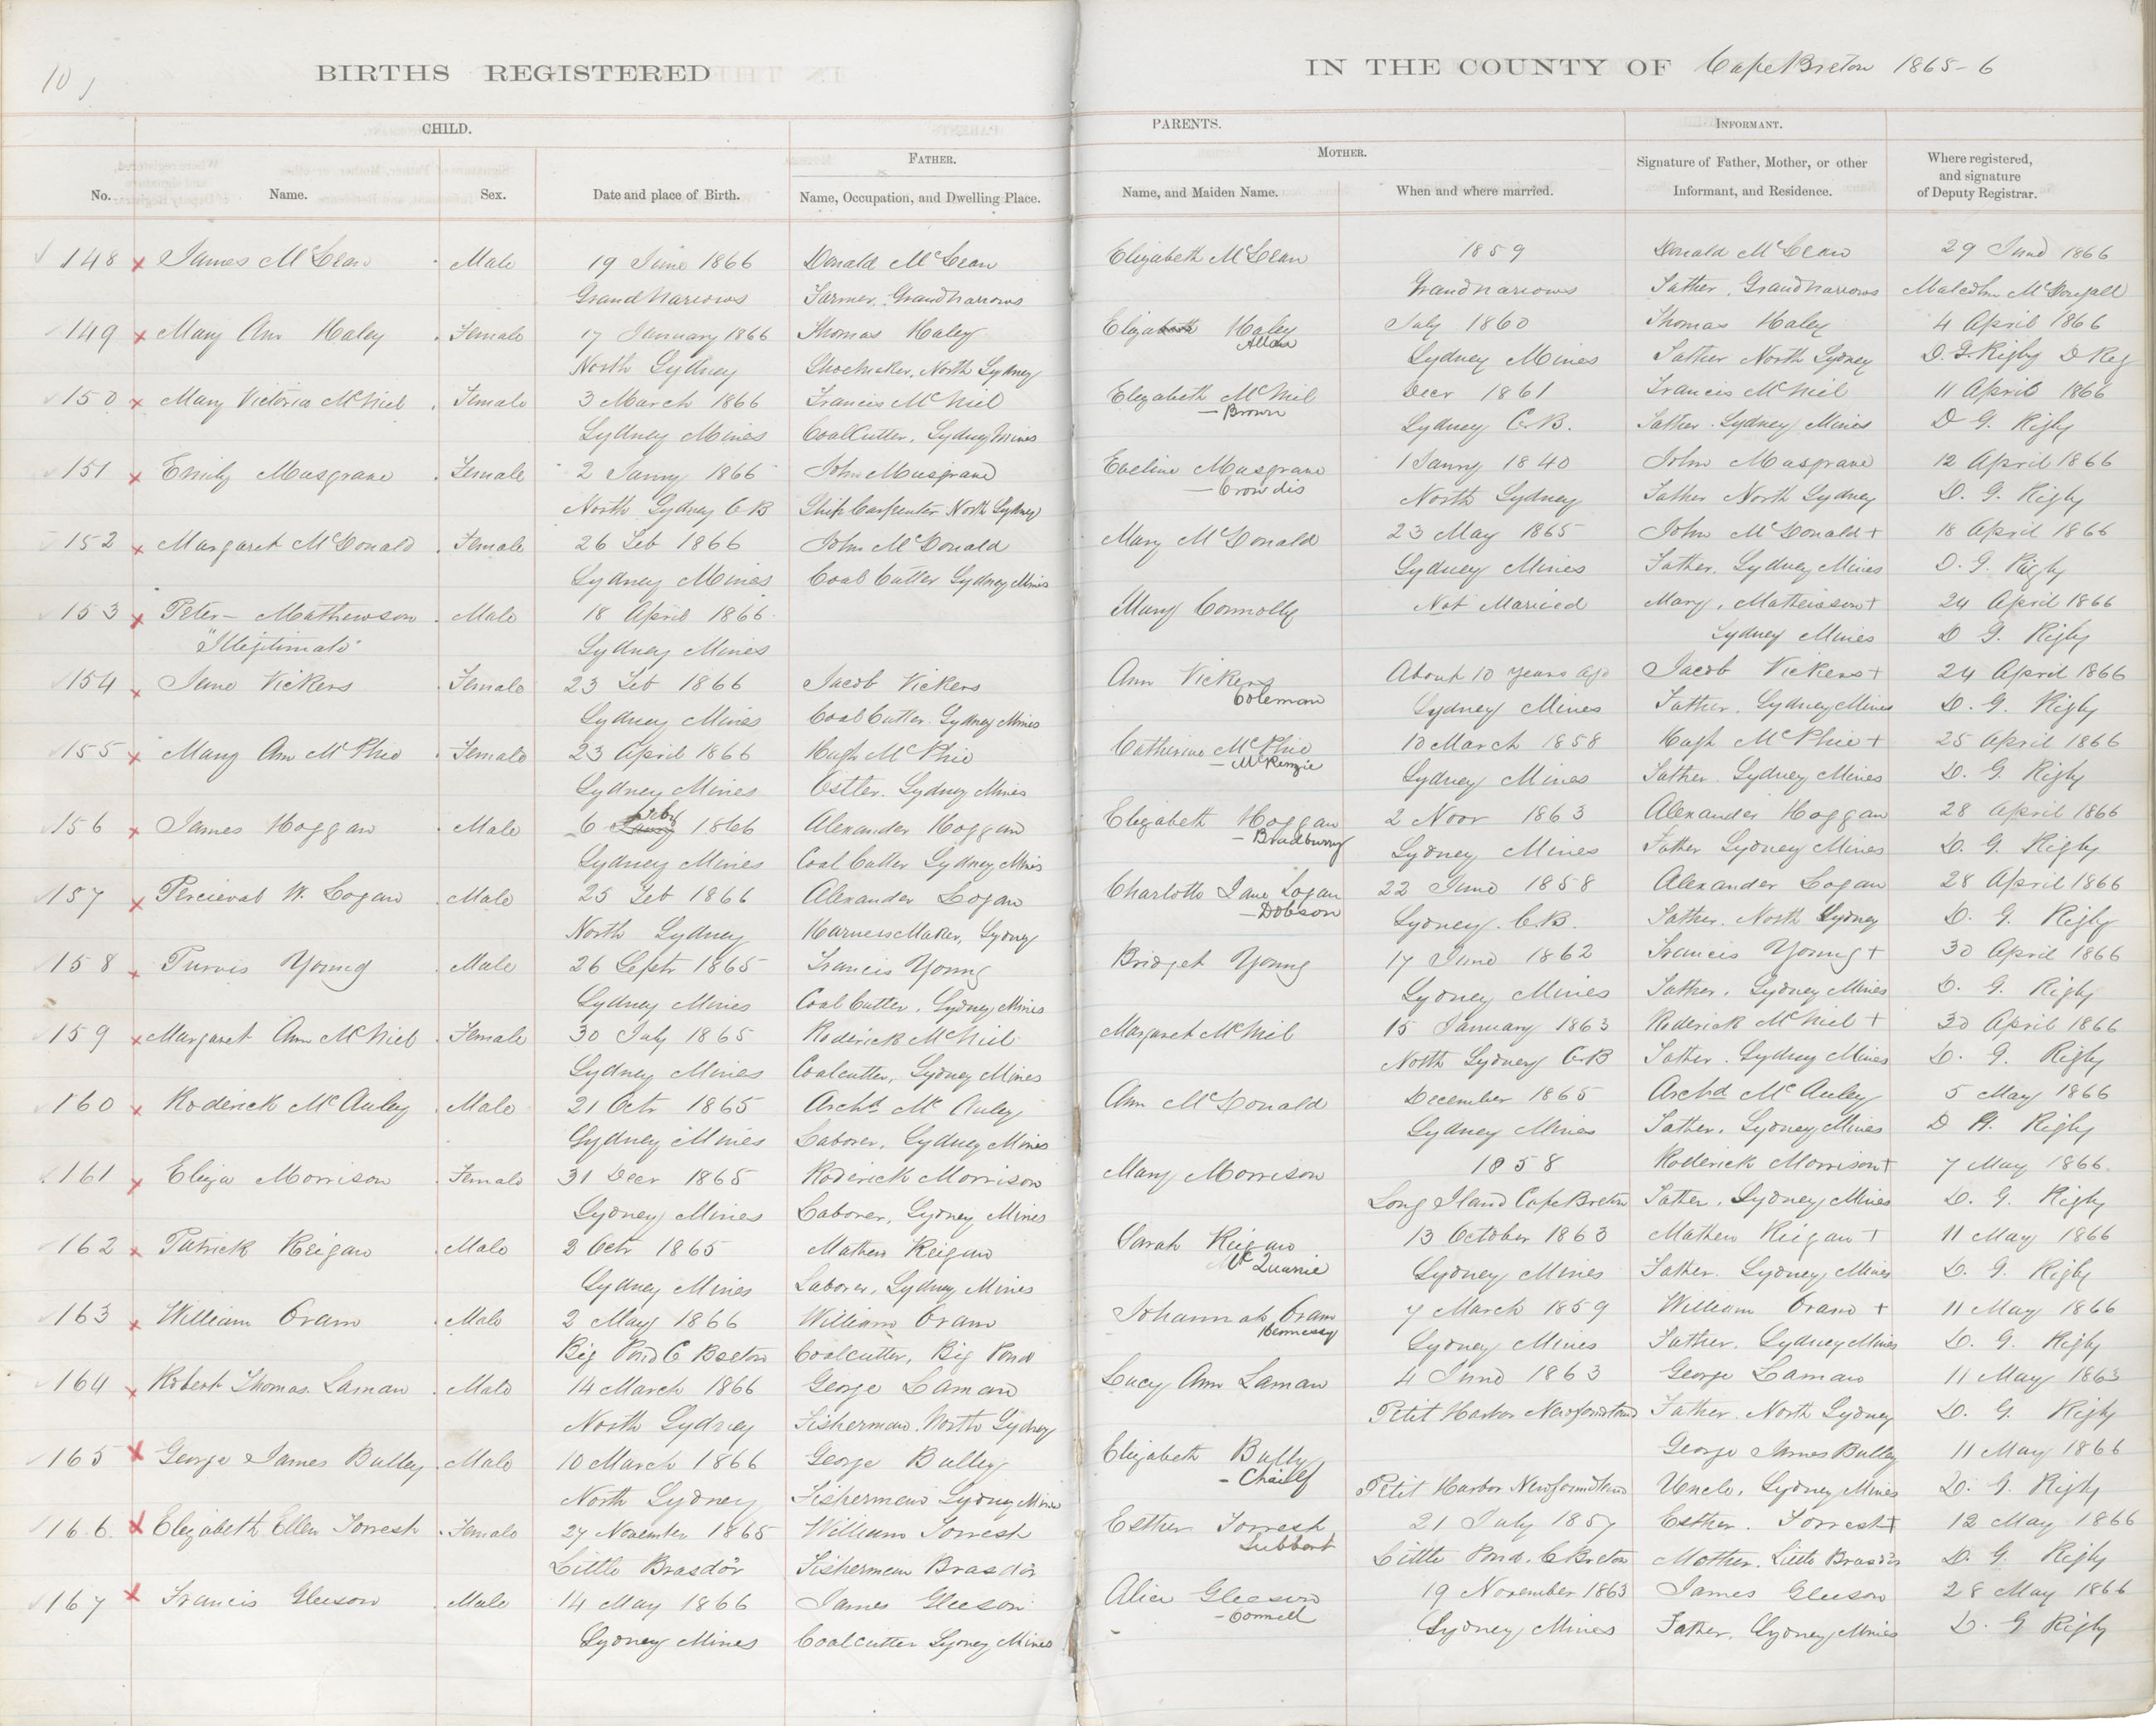 10
BIRTHS REGISTERED
IN THE COUNTY OF Cape Breton 1865-6
CHILD.
PARENTS.
INFORMANT.
No.
Name.
Sex.
Date and place of Birth.
FATHER.
Name, Occupation, and Dwelling Place.
MOTHER.
Name, and Maiden Name.
When and where married.
Signature of Father, Mother, or other
Informant, and Residence.
Where registered,
and signature
of Deputy Registrar.
148 x James McLean Male 19 June 1866 Donald McLean Elizabeth McLean 1859 Donald McLean 29 June 1866
Grand Narrows Farmer Grand Narrows Grand Narrows Father, Grand Narrows Malcolm McDougall
149 x Mary Ann Haley Female 17 January 1866 Thomas Haley Elizabeth Haley July 1860 Thomas Haley 4 April 1866
Allan
North Sydney Shoemaker, North Sydney Sydney Mines Father North Sydney D. G. Rigby D Reg
150 x Mary Victoria McNiel Female 3 March 1866 Francis McNiel Elizabeth McNiel Decr 1861 Francis McNiel 11 April 1866
- Brown
Sydney Mines Coal Cutter, Sydney Mines Sydney C.B. Father Sydney Mines D G. Rigby
151 x Emily Musgrave Female 2 Janry 1866 John Musgrave Eveline Musgrave 1 Janry 1840 John Musgrave 12 April 1866
- Crowdis
North Sydney C B Ship Carpenter North Sydney North Sydney Father North Sydney D. G. Rigby
152 x Margaret McDonald Female 26 Feb 1866 John McDonald Mary McDonald 23 May 1865 John McDonald + 18 April 1866
Sydney Mines Coal Cutter Sydney Mines Sydney Mines Father. Sydney Mines D. G. Rigby
153 x Peter - Mathewson Male 18 April 1866 Mary Connolly Not Married Mary, Matheisson + 24 April 1866
"Illegitimate" Sydney Mines Sydney Mines D G. Rigby
154 x Jane Vickers Female 23 Feb 1866 Jacob Vickers Ann Vickers About 10 years ago Jacob Vickers + 24 April 1866
Coleman
Sydney Mines Coal Cutter. Sydney Mines Sydney Mines Father. Sydney Mines D. G. Rigby
155 x Mary Ann McPhie Female 23 April 1866 Hugh McPhie Catherine McPhie 10 March 1858 Hugh McPhie + 25 April 1866
- McKenzie
Sydney Mines Ostler. Sydney Mines Sydney Mines Father. Sydney Mines D. G. Rigby
156 x James Hoggan Male 6 Feby 1866 Alexander Hoggan Elizabeth Hoggan 2 Novr 1863 Alexander Hoggan 28 April 1866
- Bradbury
Sydney Mines Coal Cutter Sydney Mines Sydney Mines Father Sydney Mines D. G. Rigby
157 x Percieval W. Logan Male 25 Feb 1866 Alexander Logan Charlotte Jane Logan 22 June 1858 Alexander Logan 28 April 1866
- Dobson
North Sydney Harness Maker, Sydney Sydney. C.B. Father. North Sydney D. G. Rigby
158 x Purvis Young Male 26 Septr 1865 Francis Young Bridget Young 17 June 1862 Francis Young + 30 April 1866
Sydney Mines Coal Cutter, Sydney Mines Sydney Mines Father. Sydney Mines D. G. Rigby
159 x Margaret Ann McNiel Female 30 July 1865 Roderick McNiel Margaret McNiel 15 January 1863 Roderick McNiel + 30 April 1866
Sydney Mines Coalcutter, Sydney Mines North Sydney C B Father. Sydney Mines D. G. Rigby
160 x Roderick McAuley Male 21 Octr 1865 Archd McAuley Ann McDonald December 1865 Archd McAuley 5 May 1866
Sydney Mines Laborer, Sydney Mines Sydney Mines Father, Sydney Mines D G. Rigby
161 x Eliza Morrison Female 31 Decr 1865 Roderick Morrison Mary Morrison 1858 Roderick Morrison + 7 May 1866.
Sydney Mines Laborer, Sydney Mines Long Iland Cape Breton Father, Sydney Mines D. G. Rigby
162 x Patrick Reigan Male 2 Octr 1865 Mathew Reigan Sarah Reigan 13 October 1863 Mathew Reigan + 11 May 1866
McQuarrie
Sydney Mines Laborer, Sydney Mines Sydney Mines Father. Sydney Mines D. G. Rigby
163 x William Oram Male 2 May 1866 William Oram Johannah Oram 7 March 1859 William Oram + 11 May 1866
Hennessy
Big Pond C Breton Coalcutter, Big Pond Sydney Mines Father. Sydney Mines D. G. Rigby
164 x Robert Thomas Laman Male 14 March 1866 George Laman Lucy Ann Laman 4 June 1863 George Laman 11 May 1863
North Sydney Fisherman. North Sydney Petit Harbor Newfoundland Father. North Sydney D. G. Rigby
165 x George James Bulley Male 10 March 1866 George Bulley Elizabeth Bully George James Bulley 11 May 1866
North Sydney Fisherman Sydney Mines Petit Harbor Newfoundland Uncle, Sydney Mines D. G. Rigby
166 x Elizabeth Ellen Forrest Female 27 November 1865 William Forrest Esther Forrest 21 July 1857 Esther. Forrest + 12 May 1866
Little Brasdor Fisherman Brasdor Little Pond. C Breton Mother. Little Brasdor D. G. Rigby
167 x Francis Gleeson Male 14 May 1866 James Gleeson Alice Gleeson 19 November 1863 James Gleeson 28 May 1866
- Connell
Sydney Mines Coalcutter Sydney Mines Sydney Mines Father, Sydney Mines D. G Rigby